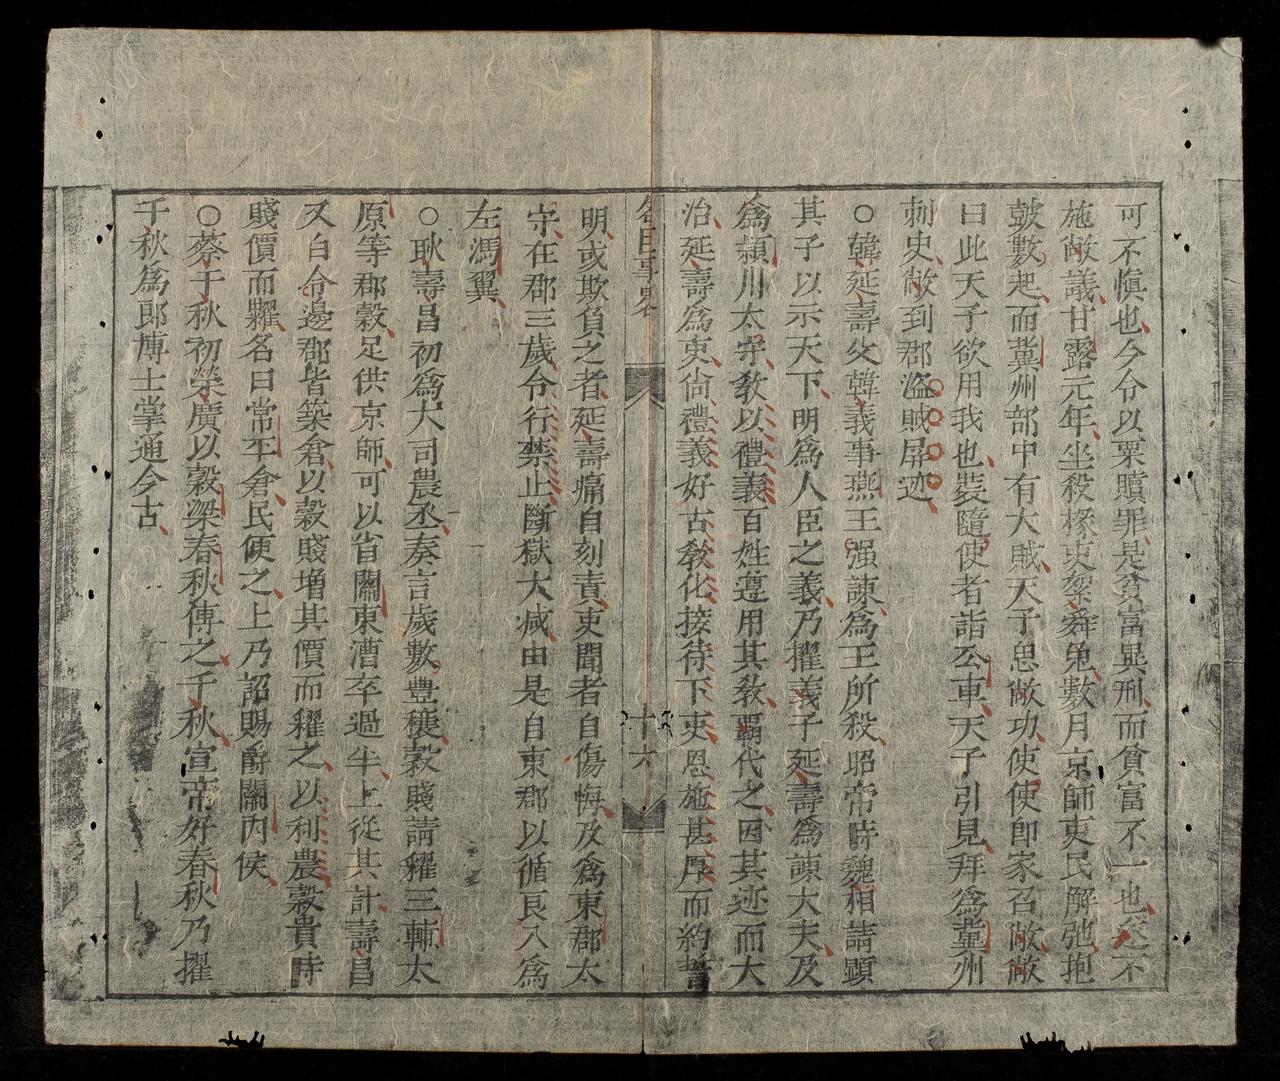 可不慎也今令以粟贖罪是貧富異刑而貧富不一也終不
施敞議甘露元年坐殺掾吏絮舜免數月京師吏民解弛抱
皷數起而冀州部中有大賊天子思敞功使使即家召敞敞
曰此天子欲用我也裝隨使者詣公車天子引見拜為冀州
刺史敞到郡盗賊屏迹
○韓延壽父韓義事燕王强諫為王所殺昭帝時魏相請顕
其子以示天下明為人臣之義乃擢義子延壽為諫大夫及
為潁川太守教以禮義百姓遵用其教覇代之因其迹而大
治延壽為吏尚禮義好古教化接待下吏恩施甚厚而約誓
名臣事畧
十六
明或欺負之者延壽痛自刻責吏聞者自傷悔及為東郡太
守在郡三歲令行禁止斷獄大减由是自東郡以循良入為
左馮翼
○耿壽昌初為大司農丞奏言歲數豊穰穀賤請糴三輔太
原等郡穀足供京師可以省關東漕卒過半上從其計壽昌
又白令邊郡皆築倉以穀賤增其價而糴之以利農穀貴時
賤價而糶名曰常平倉民便之上乃詔賜爵關內侯
○蔡千秋初榮廣以穀梁春秋傳之千秋宣帝好春秋乃擢
千秋為郎博士掌通今古